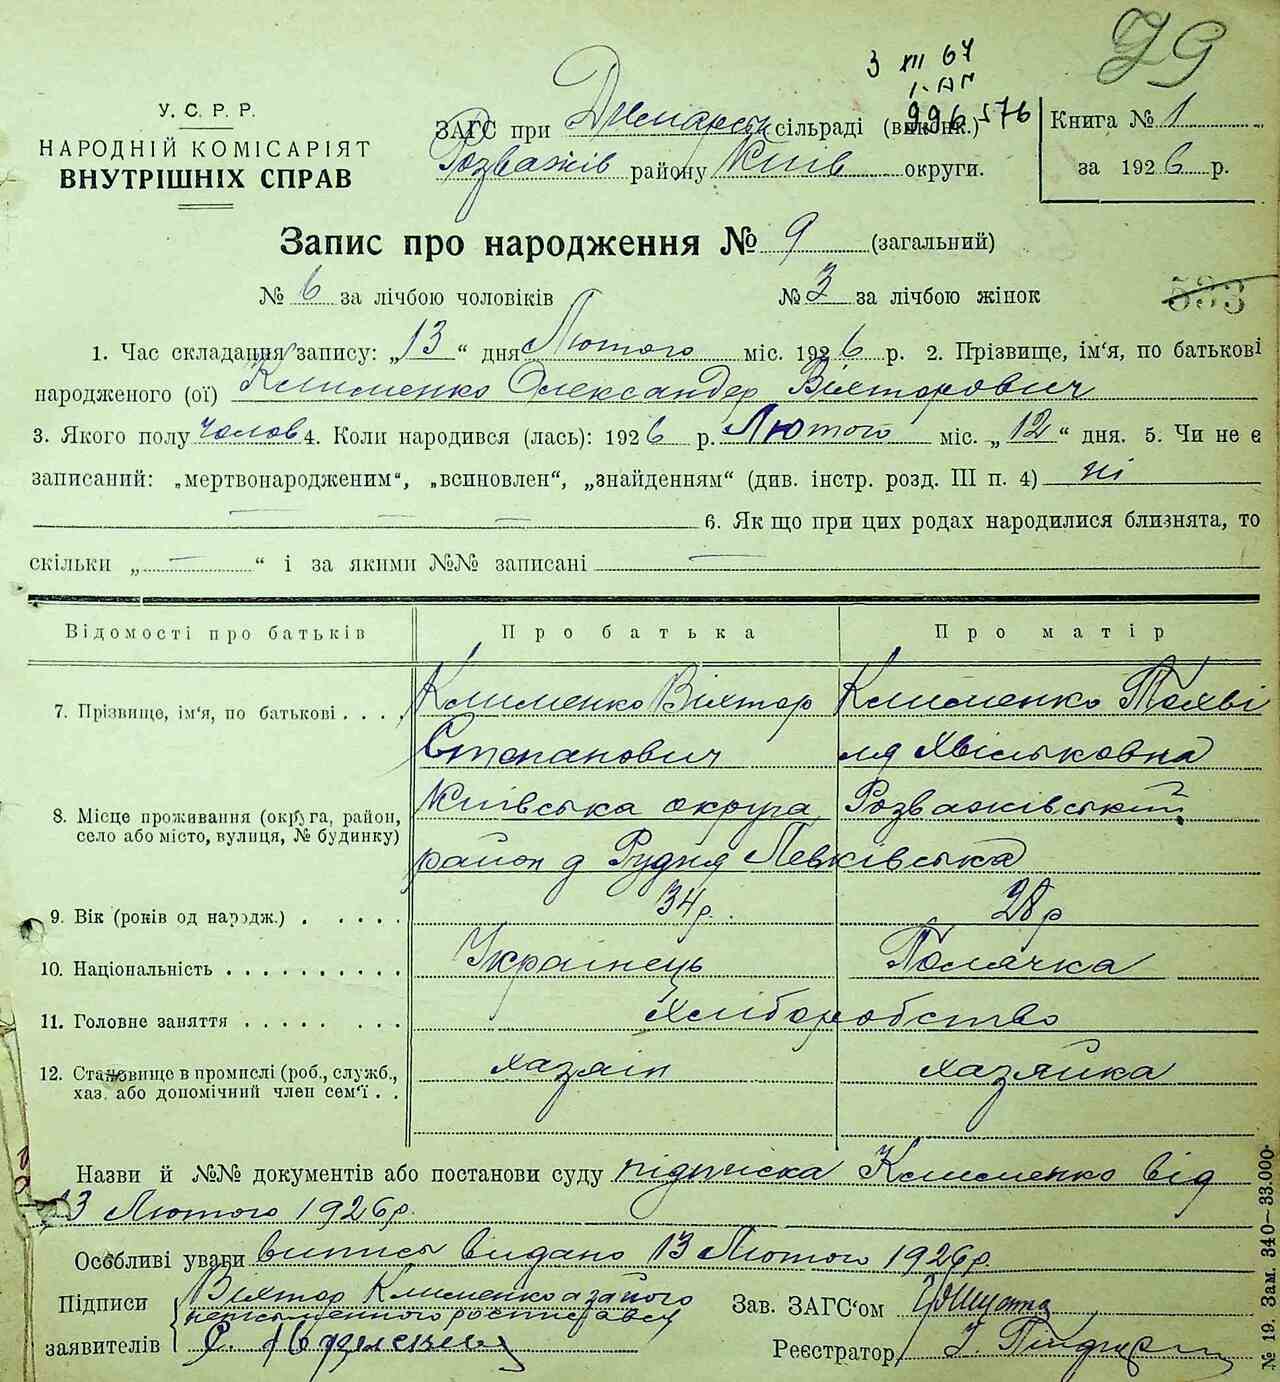 79
3 XII 64
I-АП
996576
У. С. Р. Р.
НАРОДНІЙ КОМІСАРІЯТ
ВНУТРІШНІХ СПРАВ
ЗАГС при сільраді (викон.)
Розважів району Київ округи.
Книга № 1
за 1926 р.
Запис про народження № 9 (загальний)
№ 6 за лічбою чоловіків № 3 за лічбою жінок
533
1. Час складання запису: „13“ дня Лютого міс. 1926 р. 2. Прізвище, ім‘я, по батькові
народженого (ої) Клименко Олександер Вікторович
3. Якого полу чолов 4. Коли народився (лась): 1926 р. Лютого міс. „12“ дня. 5. Чи не є
записаний: „мертвонародженим“, „всиновлен“, „знайденням“ (див. інстр. розд. III п. 4) ні
— — — 6. Як що при цих родах народилися близнята, то
скільки „—“ і за якими №№ записані —
Відомості про батьків Про батька Про матір
7. Прізвище, ім‘я, по батькові . . . . Клименко Віктор Клименко
Степанович
8. Місце проживання (округа, район, Київська округа Розважівський
село або місто, вулиця, № будинку) район д Рудня Левківська
9. Вік (років од народж.) . . . . . 34 р. 28 р
10. Національність . . . . . . . . . . Українець Полячка
11. Головне заняття . . . . . . . . Хліборобство
12. Становище в промислі (роб., служб., хазяін хазяйка
хаз. або допомічний член сем‘ї . .
Назви й №№ документів або постанови суду підписка Клименко від
13 Лютого 1926 р.
Особливі уваги випись видано 13 Лютого 1926 р.
Підписи Віктор Клименко а за його
неписьменного
заявителів
Зав. ЗАГС‘ом
Реєстратор
№ 19. Зам. 340—33.000.